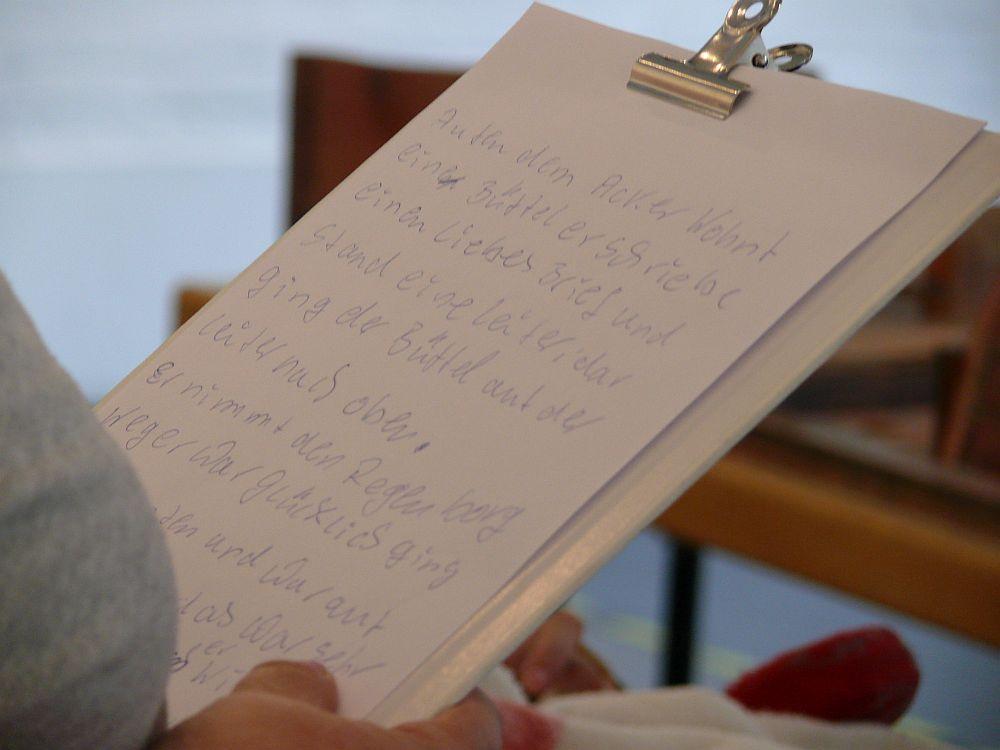 Auten dem Acker Wohnt
einen Büttel er schriebe
einen Liebes Brief und
stand eine leiter, dar
ging der Büttel auf der
leiter nach oben.
er nimmt den Regenborg
weger War glücklich ging
und War auf
das War sehr